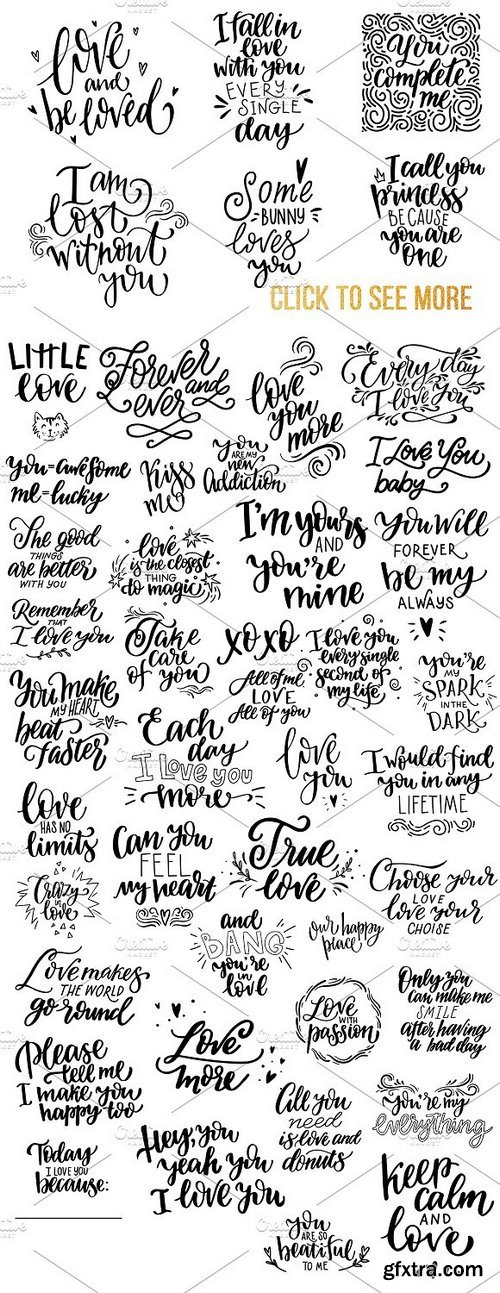 love
and
be loved
I fall in
love
with you
EVERY
SINGLE
day
You
complete
me
I am
lost
without
you
Some
-BUNNY
loves
you
I call you
princess
BECAUSE
you are
one
CLICK TO SEE MORE
LITTLE
love
Forever
and
ever
love
you
more
Every day
I love you
you=awesome
me=lucky
Kiss
me
you
ARE MY
new
Addiction
I Love You
baby
The good
THINGS
are better
WITH YOU
love
is the closest
THING
to magic
I'm yours
AND
you're
mine
You will
FOREVER
be my
ALWAYS
Remember
THAT
I love you
Take
care
of you
xoxo
All of me
LOVE
All of you
I love you
every single
second of
my life
you're
MY
SPARK
IN THE
DARK
You make
MY HEART
beat
faster
Each
day
I LOVE YOU
more
love
you
I would find
you in any
LIFETIME
love
HAS NO
limits
Can you
FEEL
my heart
True
love
Choose your
LOVE
love your
CHOISE
Crazy
in
love
and
BANG
you're
in
love
our happy
place
Love makes
THE WORLD
go round
Love
more
Love
WITH
passion
Only you
can make me
SMILE
after having
a bad day
Please
tell me
I make you
happy too
All you
need
is love and
donuts
you're my
everything
Today
I LOVE YOU
because:
Hey, you
yeah you
I love you
keep
calm
AND
love
you
ARE SO
beatiful
TO ME
gfxtra.com